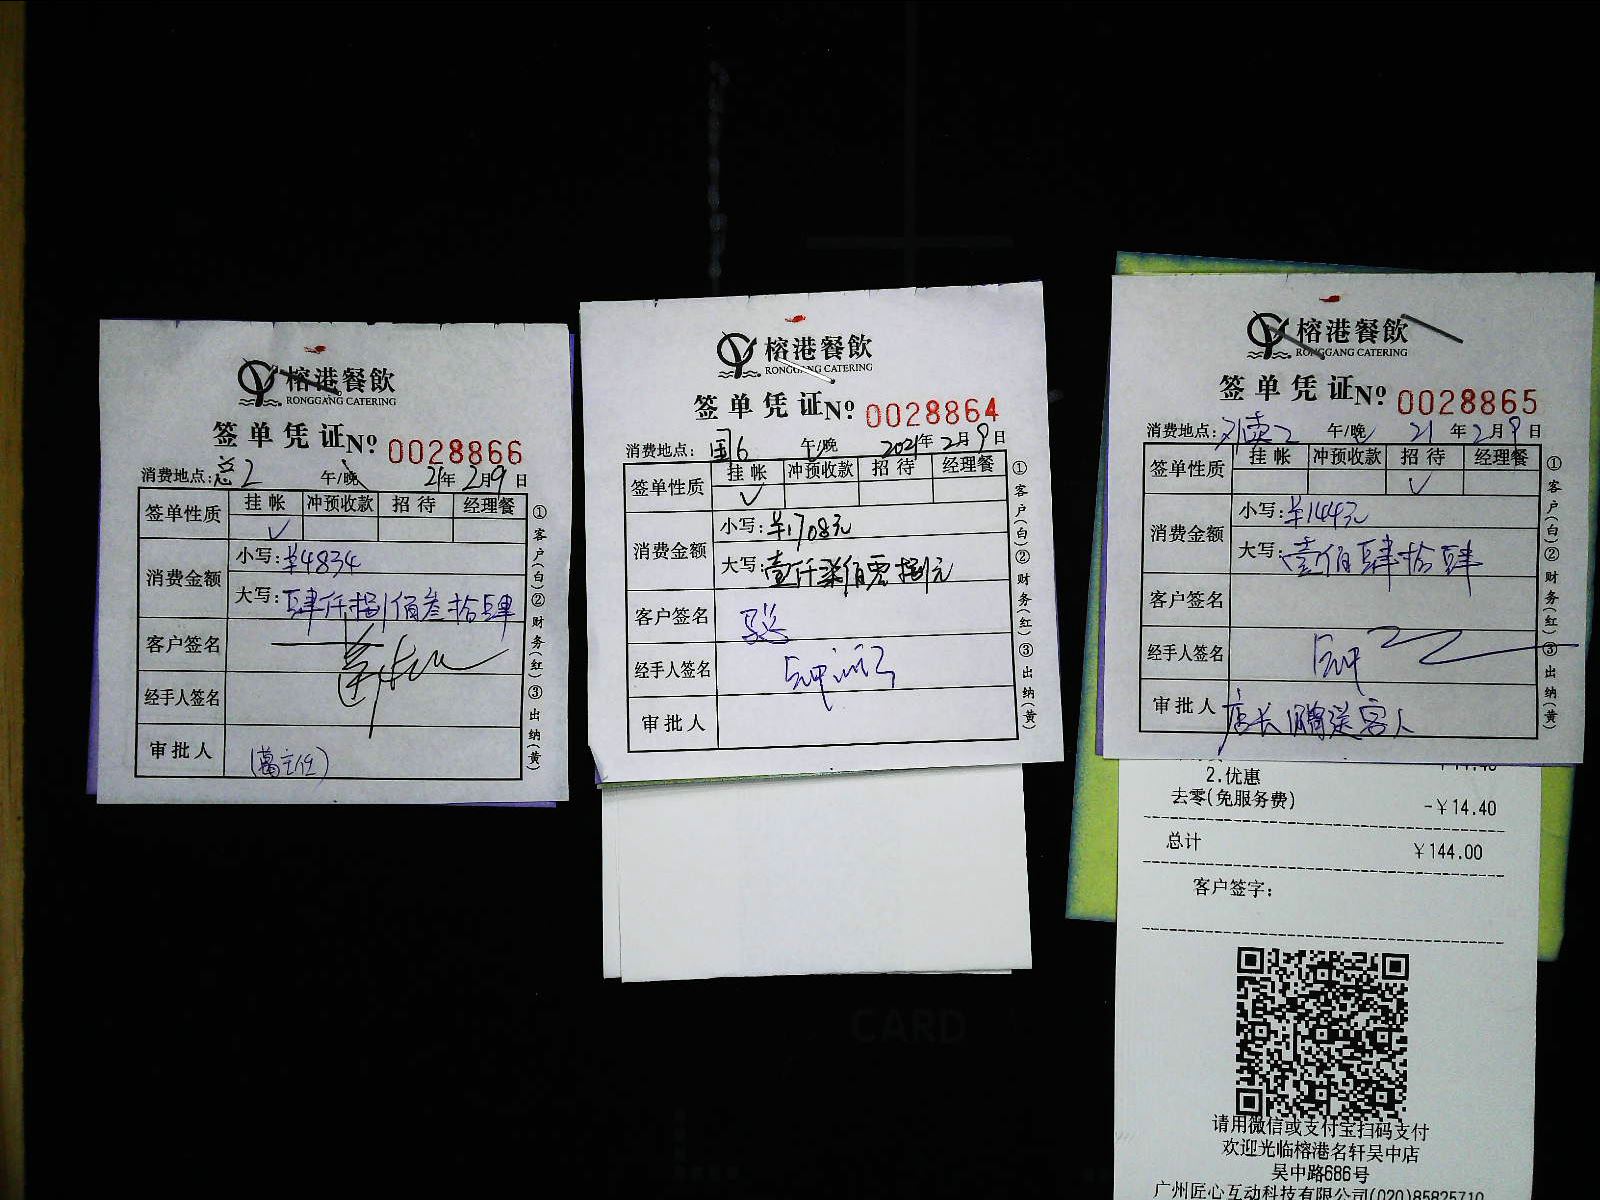 榕港餐飲
RONGGANG CATERING
签单凭证 No 0028866
消费地点: 总2 午/晚 21年2月9日
签单性质 挂帐 冲预收款 招待 经理餐
✓
消费金额 小写:¥4834
大写:肆仟捌佰叁拾肆
客户签名
经手人签名
审批人 (葛主任)
①客户(白)②财务(红)③出纳(黄)
榕港餐飲
RONGGANG CATERING
签单凭证 No 0028864
消费地点: 国6 午/晚 2021年2月9日
签单性质 挂帐 冲预收款 招待 经理餐
✓
消费金额 小写:¥1708元
大写:壹仟柒佰零捌元
客户签名
经手人签名
审批人
①客户(白)②财务(红)③出纳(黄)
榕港餐飲
RONGGANG CATERING
签单凭证 No 0028865
消费地点: 外卖2 午/晚 21年2月9日
签单性质 挂帐 冲预收款 招待 经理餐
✓
消费金额 小写:¥144元
大写:壹佰肆拾肆
客户签名
经手人签名
审批人 店长赠送客人
①客户(白)②财务(红)③出纳(黄)
2.优惠
去零(免服务费) -¥14.40
总计 ¥144.00
客户签字:
请用微信或支付宝扫码支付
欢迎光临榕港名轩吴中店
吴中路686号
广州匠心互动科技有限公司(020)85825710
CARD